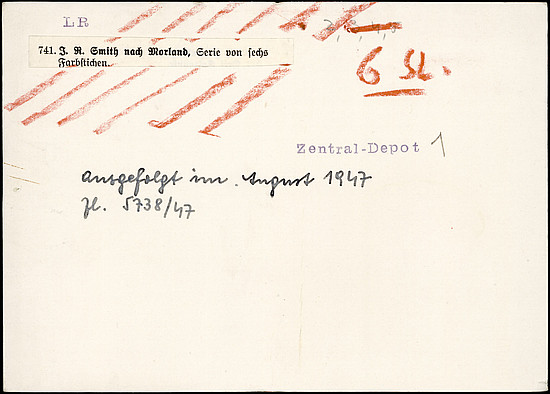 LR
741. J. R. Smith nach Morland, Serie von sechs
Farbstichen.
6 St.
Zentral-Depot 1
Ausgefolgt im August 1947
Zl. 5738/47